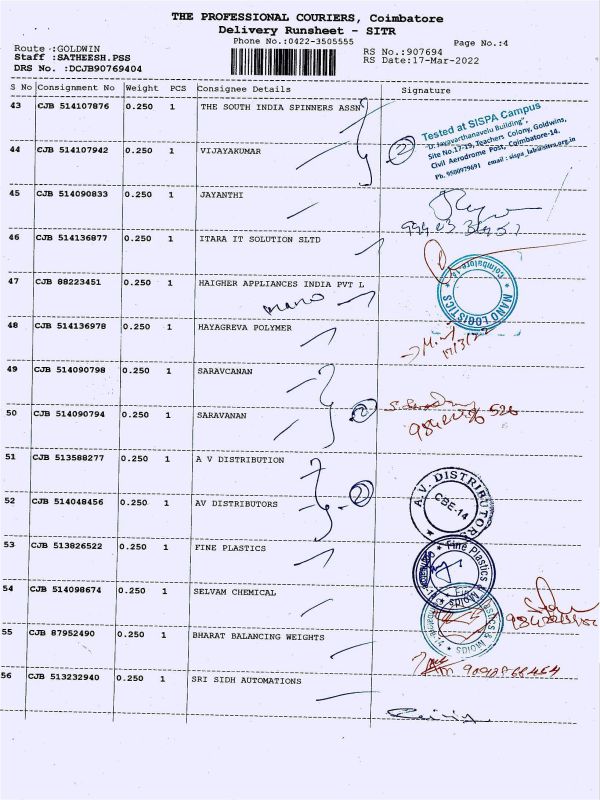 THE PROFESSIONAL COURIERS, Coimbatore
Delivery Runsheet - SITR
Phone No.:0422-3505555
Page No.:4
Route :GOLDWIN
RS No.:907694
Staff :SATHEESH.PSS
RS Date:17-Mar-2022
DRS No. :DCJB90769404
S No Consignment No Weight PCS Consignee Details Signature
43 CJB 514107876 0.250 1 THE SOUTH INDIA SPINNERS ASSN
Tested at SISPA Campus
"D. Jayavarthanavelu Building",
Site No.17-19, Teachers Colony, Goldwins,
Civil Aerodrome Post, Coimbatore-14.
Ph. 9500979691 email : sispa_lab@sitra.org.in
44 CJB 514107942 0.250 1 VIJAYAKUMAR
2
45 CJB 514090833 0.250 1 JAYANTHI
46 CJB 514136877 0.250 1 ITARA IT SOLUTION SLTD
47 CJB 88223451 0.250 1 HAIGHER APPLIANCES INDIA PVT L
mano
MANO LOGISTICS
Coimbatore
48 CJB 514136978 0.250 1 HAYAGREVA POLYMER
17/3/22
49 CJB 514090798 0.250 1 SARAVCANAN
2
50 CJB 514090794 0.250 1 SARAVANAN
51 CJB 513588277 0.250 1 A V DISTRIBUTION
2
A.V. DISTRIBUTORS
CBE-14
52 CJB 514048456 0.250 1 AV DISTRIBUTORS
53 CJB 513826522 0.250 1 FINE PLASTICS
Fine Plastics & Molds
54 CJB 514098674 0.250 1 SELVAM CHEMICAL
55 CJB 87952490 0.250 1 BHARAT BALANCING WEIGHTS
56 CJB 513232940 0.250 1 SRI SIDH AUTOMATIONS